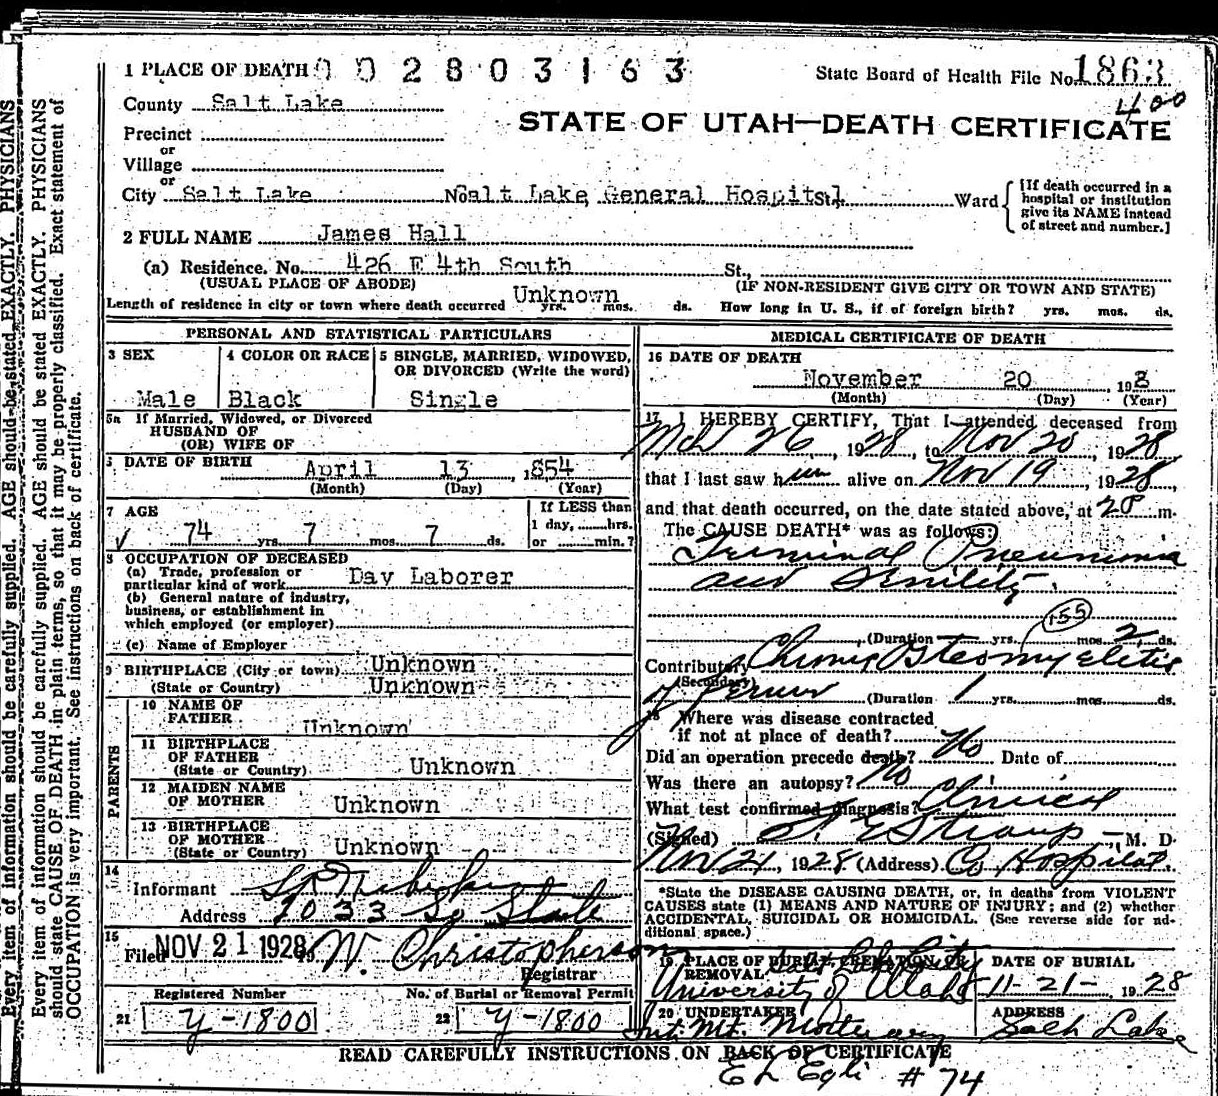 1 PLACE OF DEATH 0 0 2 8 0 3 1 6 3
State Board of Health File No. 1863
400
County Salt Lake
STATE OF UTAH—DEATH CERTIFICATE
Precinct
or
Village
or
City Salt Lake No. Salt Lake General Hospital St. Ward
[If death occurred in a hospital or institution give its NAME instead of street and number.]
2 FULL NAME James Hall
(a) Residence. No. 426 E 4th South St.,
(USUAL PLACE OF ABODE) (IF NON-RESIDENT GIVE CITY OR TOWN AND STATE)
Length of residence in city or town where death occurred Unknown yrs. mos. ds. How long in U. S., if of foreign birth? yrs. mos. ds.
PERSONAL AND STATISTICAL PARTICULARS
3 SEX
Male
4 COLOR OR RACE
Black
5 SINGLE, MARRIED, WIDOWED, OR DIVORCED (Write the word)
Single
5a If Married, Widowed, or Divorced
HUSBAND OF
(OR) WIFE OF
6 DATE OF BIRTH April 13, 1854
(Month) (Day) (Year)
7 AGE
74 yrs. 7 mos. 7 ds.
If LESS than
1 day, hrs.
or min.?
8 OCCUPATION OF DECEASED
(a) Trade, profession or
particular kind of work Day Laborer
(b) General nature of industry,
business, or establishment in
which employed (or employer)
(c) Name of Employer
9 BIRTHPLACE (City or town) Unknown
(State or Country) Unknown
PARENTS
10 NAME OF
FATHER Unknown
11 BIRTHPLACE
OF FATHER Unknown
(State or Country)
12 MAIDEN NAME
OF MOTHER Unknown
13 BIRTHPLACE
OF MOTHER Unknown
(State or Country)
14
Informant
Address 2033 So State
15
Filed NOV 21 1928, 19 W. Christopherson
Registrar
Registered Number No. of Burial or Removal Permit
21 y-1800 22 y-1800
MEDICAL CERTIFICATE OF DEATH
16 DATE OF DEATH
November 20, 1928
(Month) (Day) (Year)
17 I HEREBY CERTIFY, That I attended deceased from
Mch 26, 1928, to Nov 20, 1928
that I last saw him alive on Nov 19, 1928,
and that death occurred, on the date stated above, at m.
The CAUSE DEATH* was as follows:
Terminal Pneumonia
and Senility.
155
(Duration yrs. mos. 2 ds.
Contributory Chronic Osteomyelitis
(Secondary)
of femur (Duration 1 yrs. mos. ds.
18 Where was disease contracted
if not at place of death?
Did an operation precede death? No Date of
Was there an autopsy? No
What test confirmed diagnosis? Clinical
(Signed) Straup, M. D.
Nov 21, 1928 (Address) Co Hospital.
*State the DISEASE CAUSING DEATH, or, in deaths from VIOLENT
CAUSES state (1) MEANS AND NATURE OF INJURY; and (2) whether
ACCIDENTAL, SUICIDAL OR HOMICIDAL. (See reverse side for ad-
ditional space.)
19 PLACE OF BURIAL, CREMATION, OR
REMOVAL Salt Lake City
University of Utah
DATE OF BURIAL
11-21-, 1928
20 UNDERTAKER
Int. Mt. Mortuary
ADDRESS
Salt Lake
READ CAREFULLY INSTRUCTIONS ON BACK OF CERTIFICATE
E L Egli # 74
Every item of information should be carefully supplied. AGE should be stated EXACTLY. PHYSICIANS
Every item of information should be carefully supplied. AGE should be stated EXACTLY. PHYSICIANS
should state CAUSE OF DEATH in plain terms, so that it may be properly classified. Exact statement of
OCCUPATION is very important. See instructions on back of certificate.